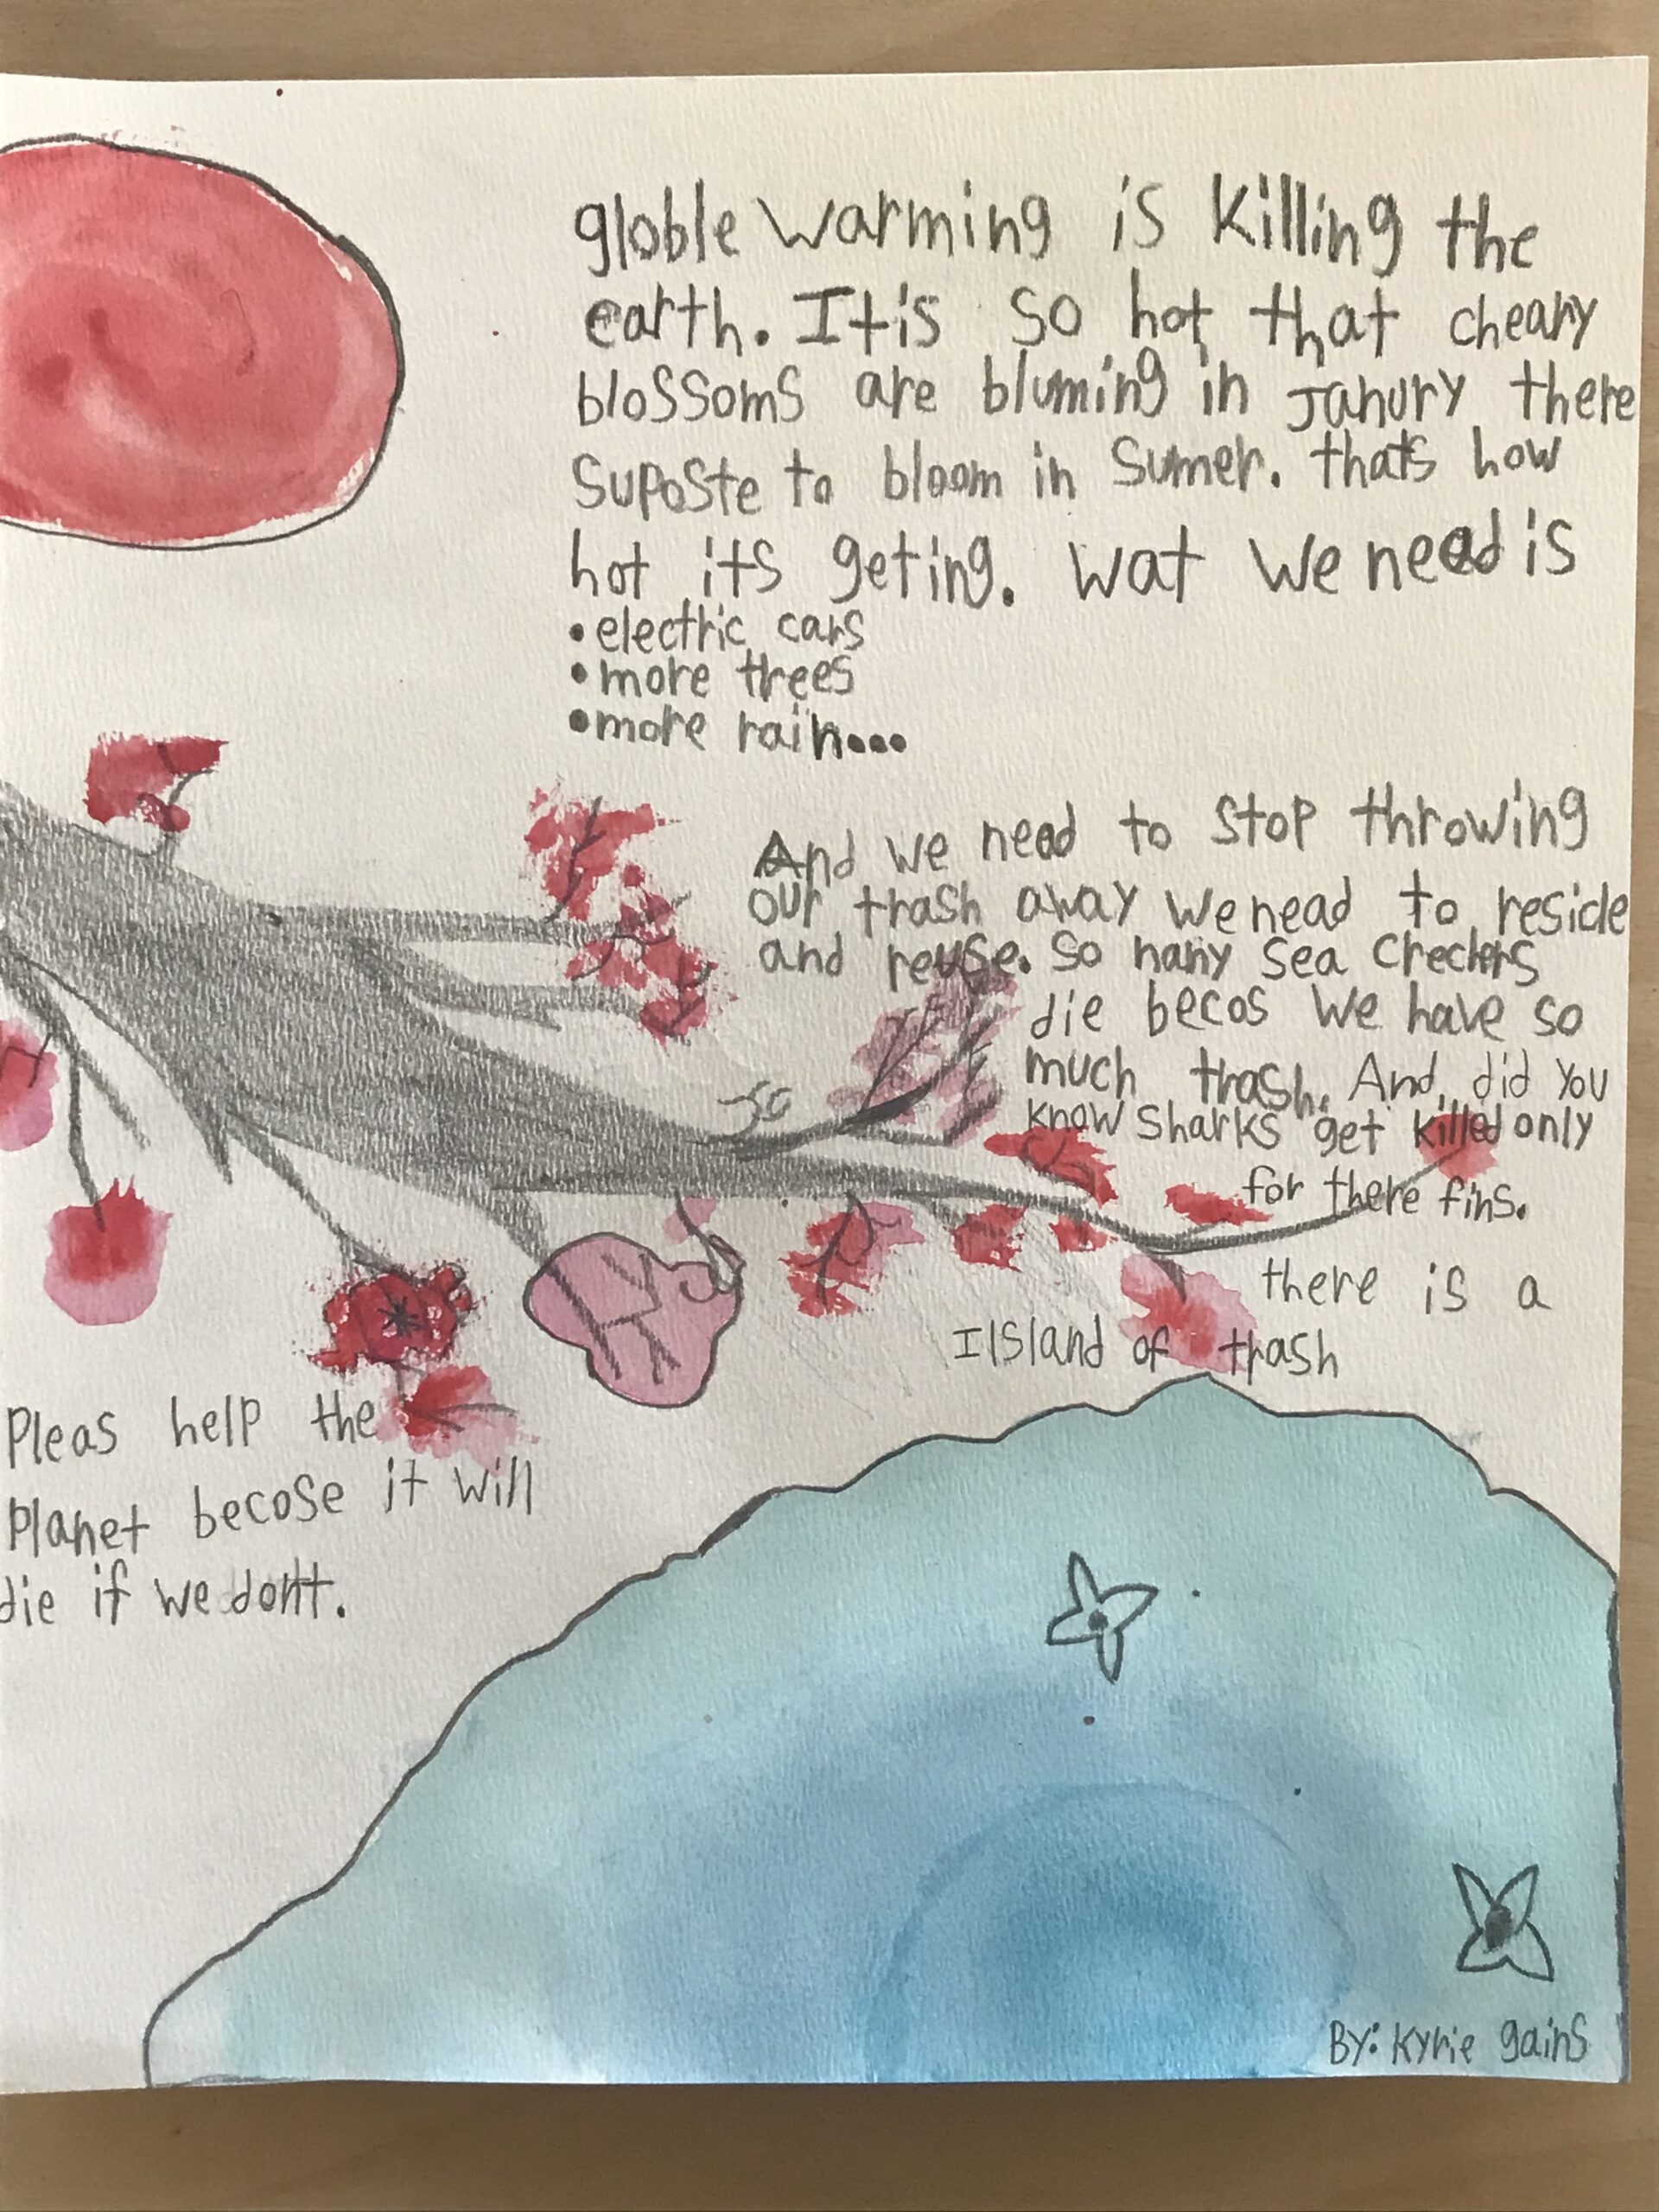 globle warming is killing the
earth. It is so hot that cheary
blossoms are bluming in Janury there
suposte to bloom in sumer. thats how
hot its geting. wat we need is
• electric cars
• more trees
• more rain...
And we need to stop throwing
our trash away we nead to resicle
and reuse. so many sea crechers
die becos we have so
much trash. And, did you
know sharks get killed only
for there fins.
there is a
Ilsland of trash
Pleas help the
Planet becose it will
die if we dont.
BY: Kyrie gains